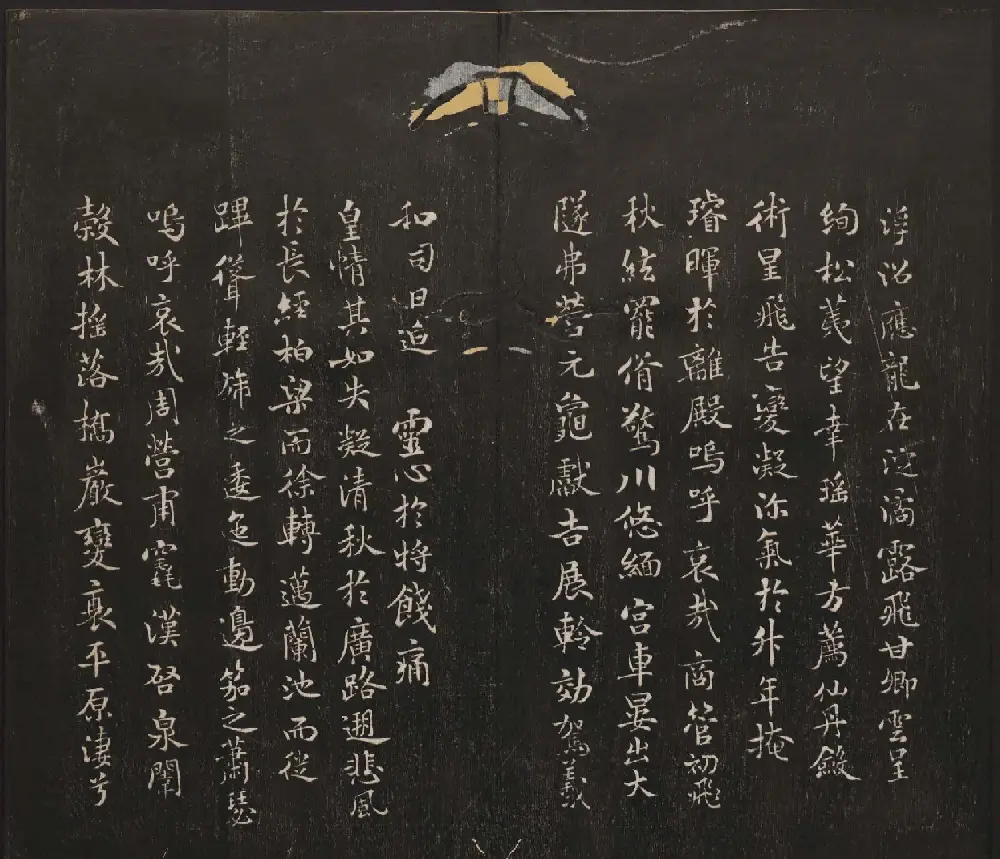 浮沼應龍在沚湑露飛甘卿雲呈
絢松荑望幸瑤華方薦仙丹斂
術星飛告變凝沴氣於升年掩
璿暉於離殿嗚呼哀哉商管初飛
秋絃罷脩驚川悠緬宮車晏出大
隧弗營元龜獻吉展軨効駕羲
和司日迫靈心於將餞痛
皇情其如失凝清秋於廣路遡悲風
於長經柏梁而徐轉邁蘭池而從
蹕聳輕旆之逶迤動邊笳之蕭瑟
嗚呼哀哉周營甫竁漢啓泉闈
穀林搖落橋巖變衰平原淒兮